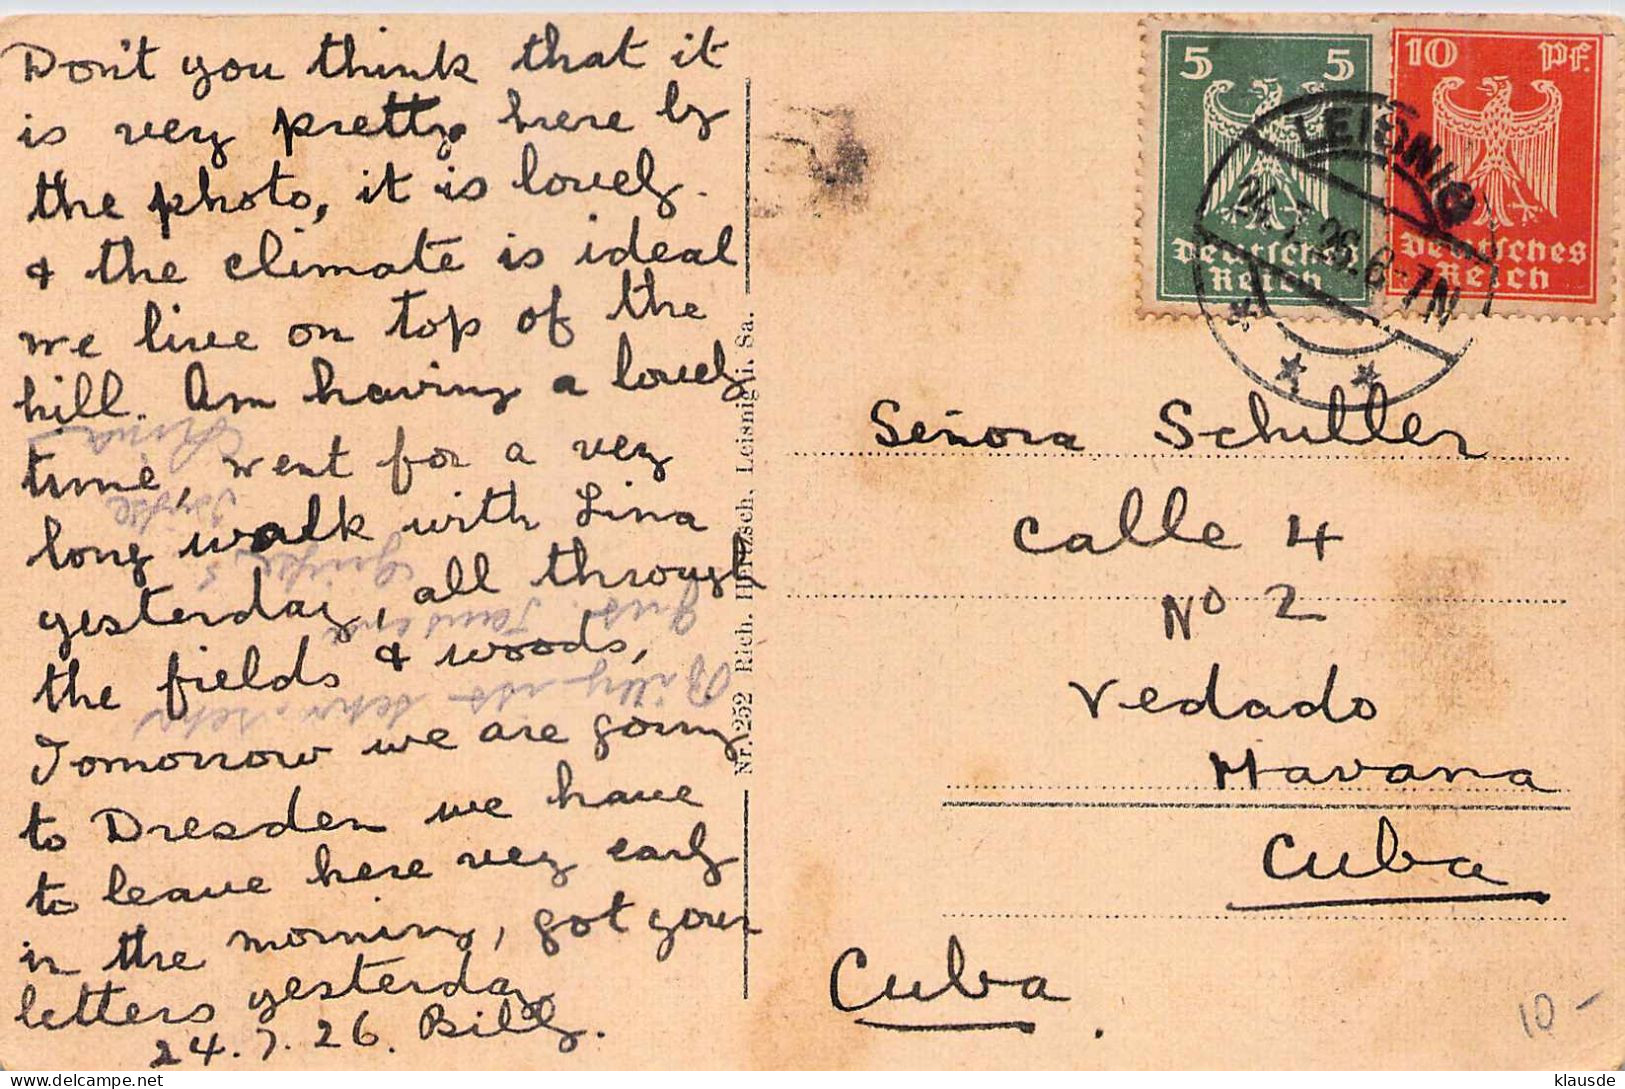 Don't you think that it
is very pretty here by
the photo, it is lovely.
& the climate is ideal
we live on top of the
hill. Am having a lovely
time, went for a very
long walk with Lina
yesterday, all through
the fields & woods,
Tomorrow we are going
to Dresden we have
to leave here very early
in the morning, got your
letters yesterday
24.7.26. Billy.
Nr. 252 Rich. Hertzsch, Leisnig i. Sa.
5 5
Deutsches
Reich
10 Pf.
Deutsches
Reich
LEISNIG
24.7.26.6-7N
Señora Schiller
Calle 4
No 2
Vedado
Havana
Cuba
Cuba.
10-
Billy ist sehr
Lina
klausde